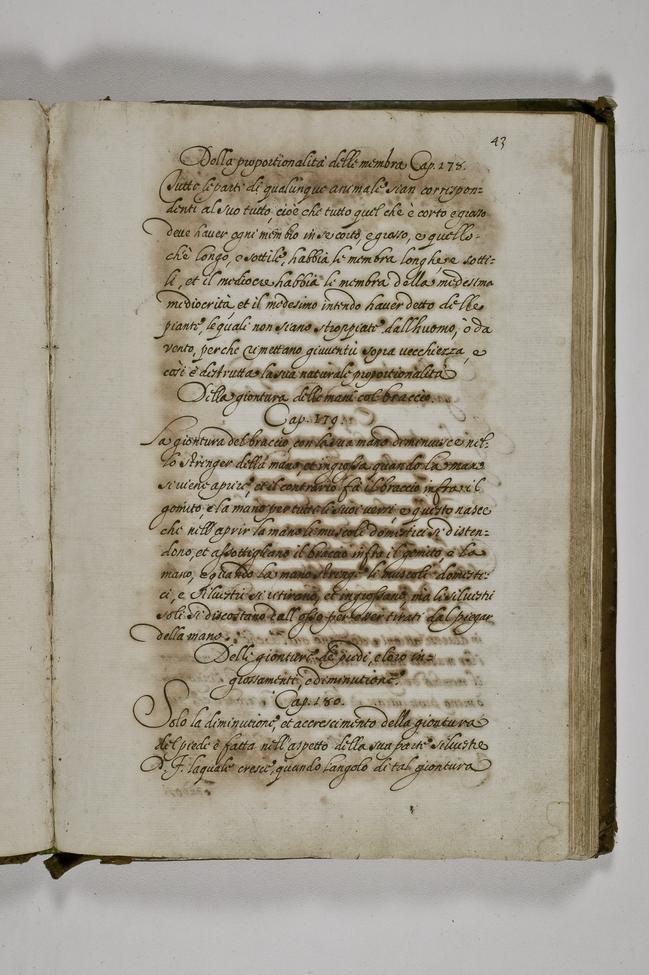 43
Della proportionalità delle membra Cap. 178.
Tutte le parti di qualunque animale sian correspon-
denti al suo tutto, cioè che tutto quel che è corto e grosso
deve haver ogni membro in se corto, e grosso, e quello
chè longo, e sottile, habbia le membra longhe, e sotti-
li, et il mediocre habbia le membra della medesima
mediocrità, et il medesimo intendo haver detto delle
piante, le quali non siano stroppiate dall'huomo, ò da
vento, perche rimettano gioventù sopra vecchiezza, e
così è destrutta la sua naturale proportionalità
Della giontura delle mani col braccio.
Cap. 179.
La giontura del braccio, con la sua mano diminuisce nel-
lo stringer della mano, et ingrossa quando la mano
si viene aprire, et il contrario fà il braccio infra il
gomito, e la mano per tutti li suoi versi, e questo nasce
che nell'aprir la mano li muscoli domestici si disten-
dono, et assottigliano il braccio infra il gomito, e la
mano, e quando la mano stringe li muscoli domesti-
ci, e silvestri si retirano, et ingrossano, ma li silvestri
soli si discostano dall'osso per esser tirati dal piegar
della mano.
Delle gionture de piedi, e loro in-
grossamenti, e diminutione.
Cap. 180.
Solo la diminutione, et accrescimento della giontura
del piede è fatta nell'aspetto della sua parte silvestre
D. F. laquale cresce, quando l'angolo di tal giontura